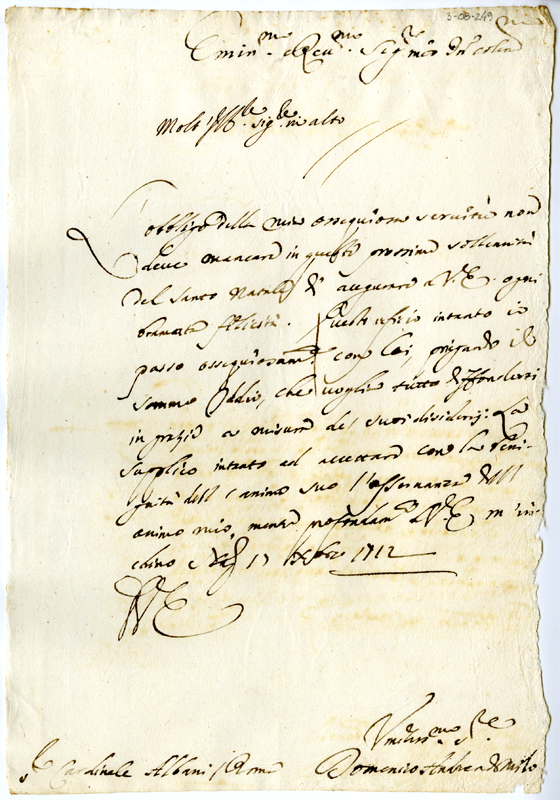 3-08-249
Emin.mo e Rev.mo Sig.r mio
Molt' Ill.re Sig.re m alto
L'obbligo della mia ossequiosa servitù non
deve mancare in questa prossima sollennità
del Santo Natale d' augurare a V.E. ogni
bramata felicità. Quest'ufizio intanto io
passo ossequiosam.te con lei, pregando il
sommo Iddio, che voglia tutto diffondersi
in grazie a misura de' suoi desiderij: La
supplico intanto ad accettare con la beni-
gnità dell'animo suo l'osservanza dell'
animo mio, mentre profondam.te a V.E. m'in-
chino 17 Xbre 1712
V.E.
Sr. Cardinale Albani Roma
Umiliss.mo S.re
Domenico Andrea de